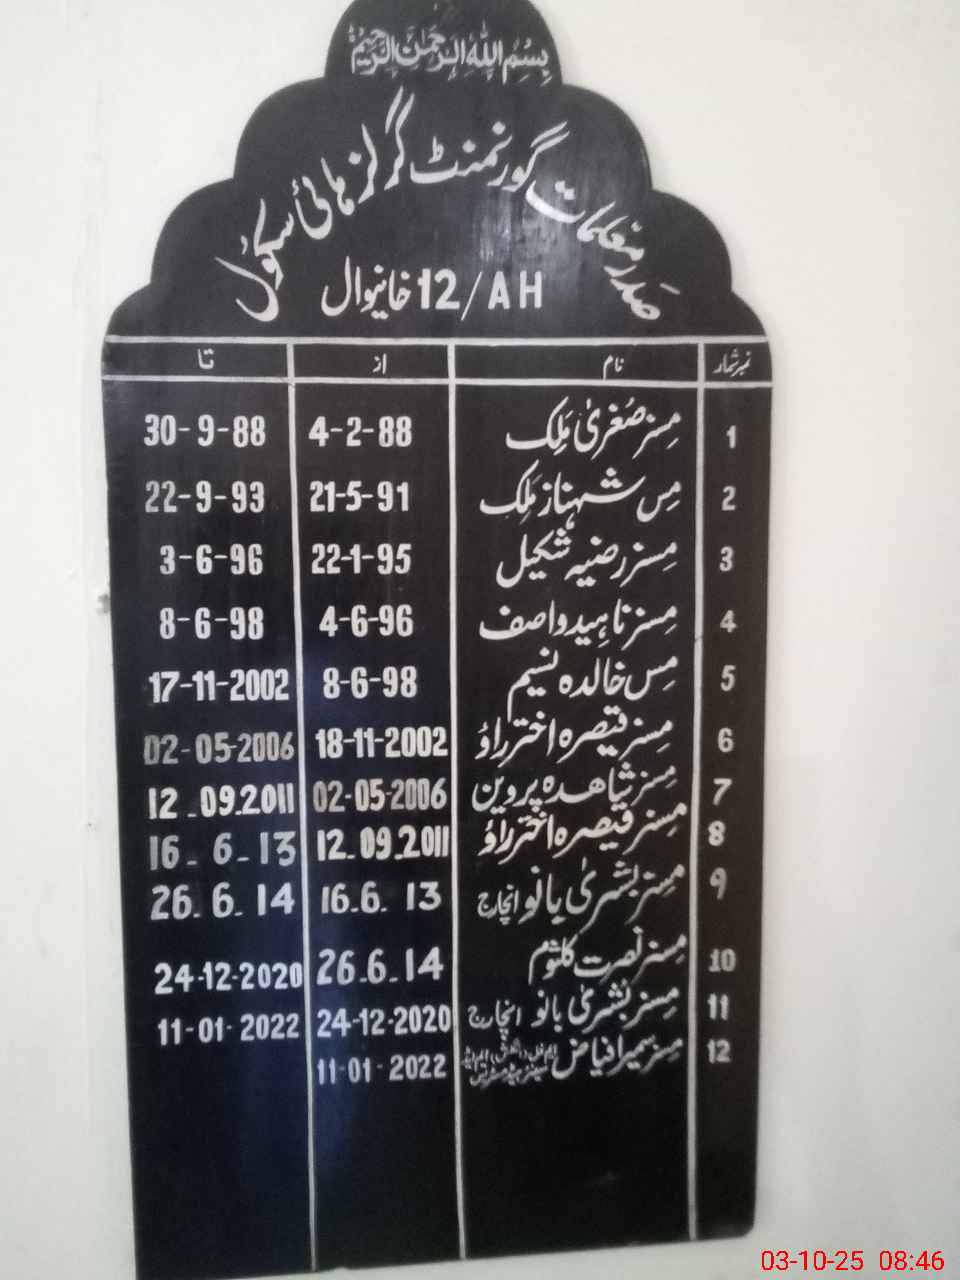 بِسْمِ اللّٰهِ الرَّحْمٰنِ الرَّحِيْمِ
صدر معلمات گورنمنٹ گرلز ہائی سکول
12/AH خانیوال
نمبرشمار نام از تا
1 مسز صُغریٰ مَلِک 4-2-88 30-9-88
2 مِس شہناز مَلِک 21-5-91 22-9-93
3 مسز رضیہ شکیل 22-1-95 3-6-96
4 مسز ناہید واصف 4-6-96 8-6-98
5 مِس خالدہ نسیم 8-6-98 17-11-2002
6 مسز قیصرہ اختر راؤ 18-11-2002 02-05-2006
7 مسز شاھدہ پروین 02-05-2006 12.09.2011
8 مسز قیصرہ اختر راؤ 12.09.2011 16.6.13
9 مسز بشریٰ بانو انچارج 16.6.13 26.6.14
10 مسز نصرت کلثوم 26.6.14 24-12-2020
11 مسز بشریٰ بانو انچارج 24-12-2020 11-01-2022
12 مسز سمیرا فیاض 11-01-2022
03-10-25 08:46